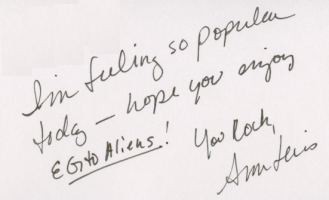 I'm feeling so popular
today — hope you enjoy
EGtO Aliens! You Rock,
Ann